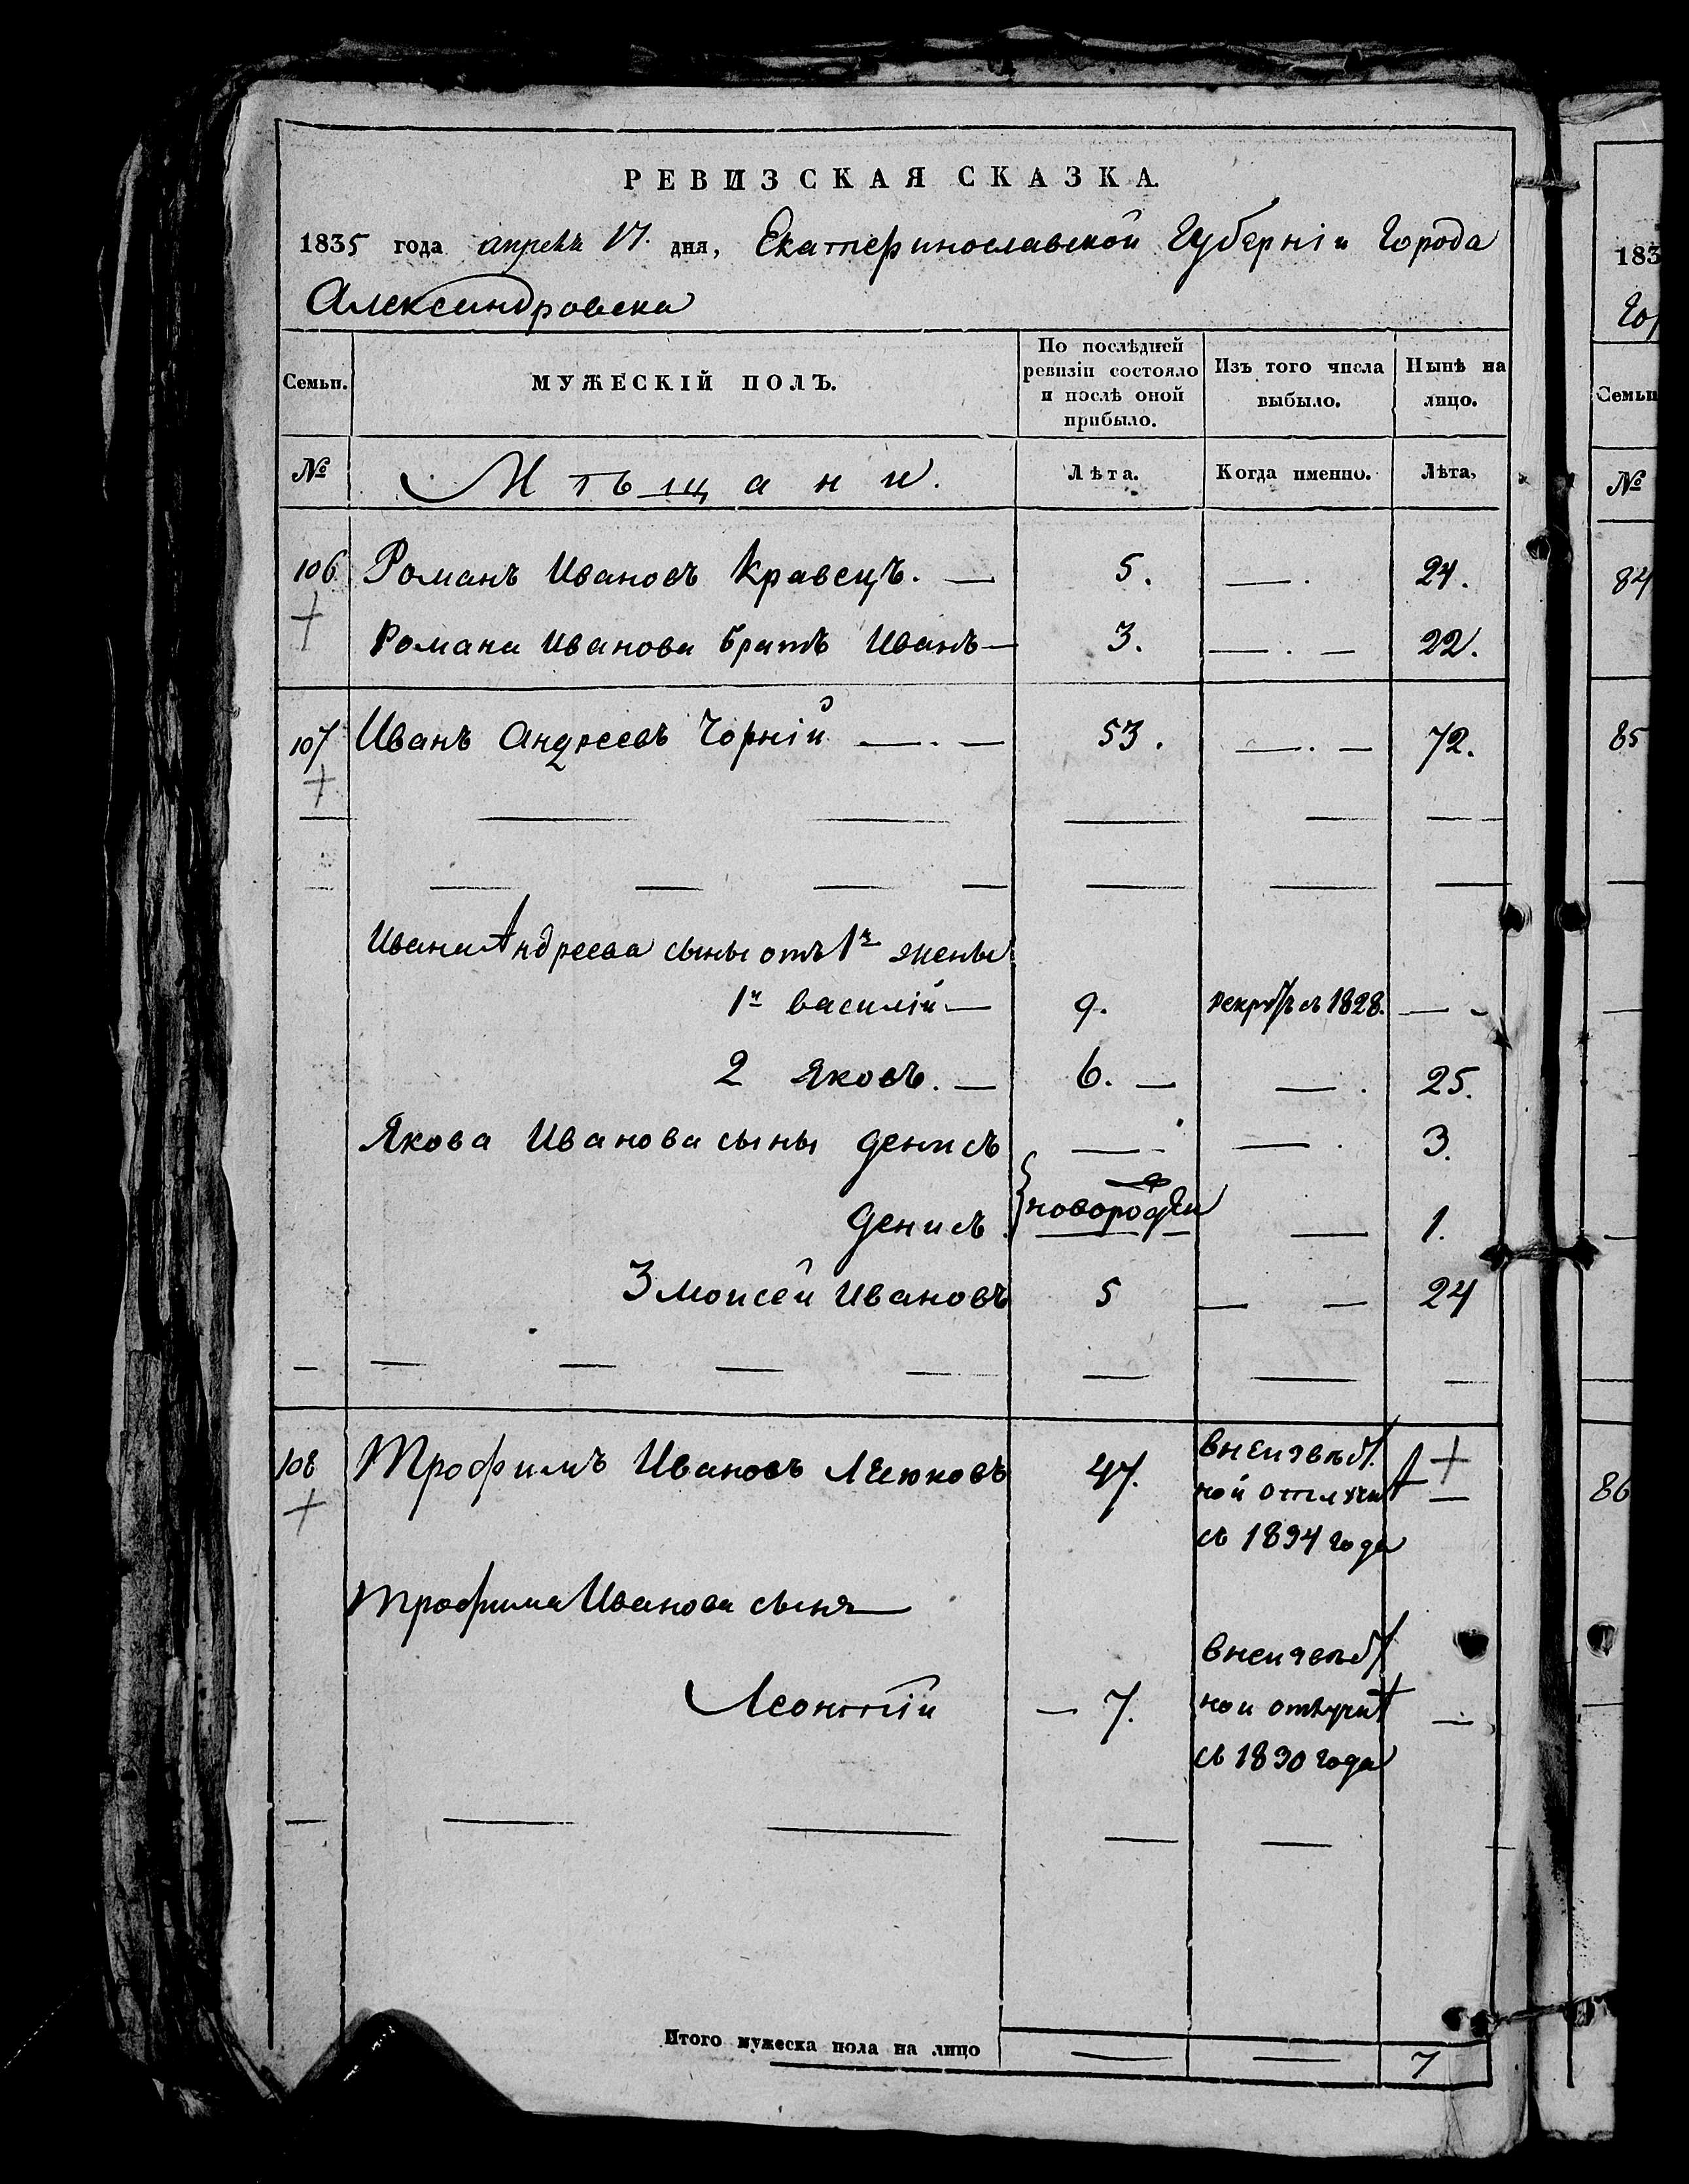 РЕВИЗСКАЯ СКАЗКА.
1835 года апреля 17. дня, Екатеринославской Губерніи Города
Александровска
Семьи.
МУЖЕСКІЙ ПОЛЪ.
По послѣдней ревизіи состояло и послѣ оной прибыло.
Изъ того числа выбыло.
Нынѣ на лицо.
№
Мѣщани.
Лѣта.
Когда именно.
Лѣта,
106. Романъ Ивановъ Кравецъ. — 5. — . 24.
+ Романа Иванова братъ Иванъ — 3. — . — 22.
107 Иванъ Андреевъ Чорній — . — 53. — . — 72.
+
Ивана Андреева сыны отъ 1й жены
1й василій — 9. рекрутъ съ 1828. —
2 Яковъ. — 6. — — . 25.
Якова Иванова сыны денисъ — — . 3.
денисъ. новорожден — 1.
3 Моисей Ивановъ 5 — — 24
108 Трофимъ Ивановъ 47. +
+ внеизвѣст
ной отлучкѣ —
съ 1834 года
Трофима Иванова сынъ
внеизвѣст
Леонтій — 7. ной отлучкѣ —
съ 1830 года
Итого мужеска пола на лицо — — 7
183
Го
Семьи
№
84
85
86